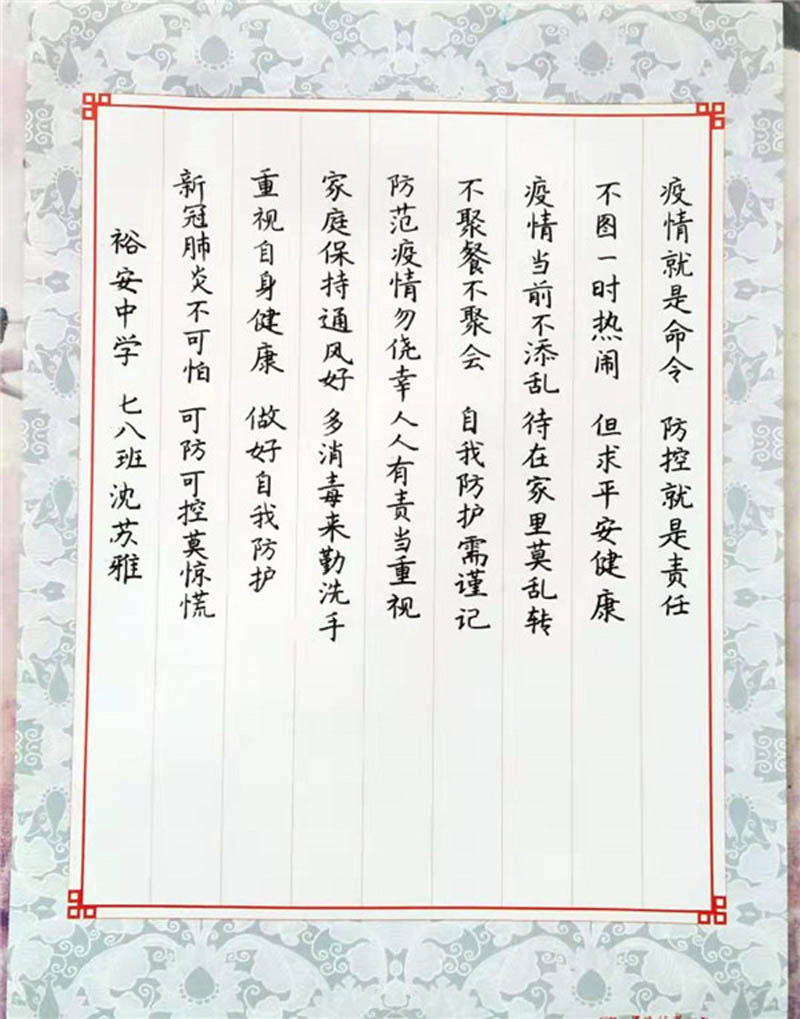 疫情就是命令 防控就是责任
不图一时热闹 但求平安健康
疫情当前不添乱 待在家里莫乱转
不聚餐不聚会 自我防护需谨记
防范疫情勿侥幸 人人有责当重视
家庭保持通风好 多消毒来勤洗手
重视自身健康 做好自我防护
新冠肺炎不可怕 可防可控莫惊慌
裕安中学 七八班沈苏雅